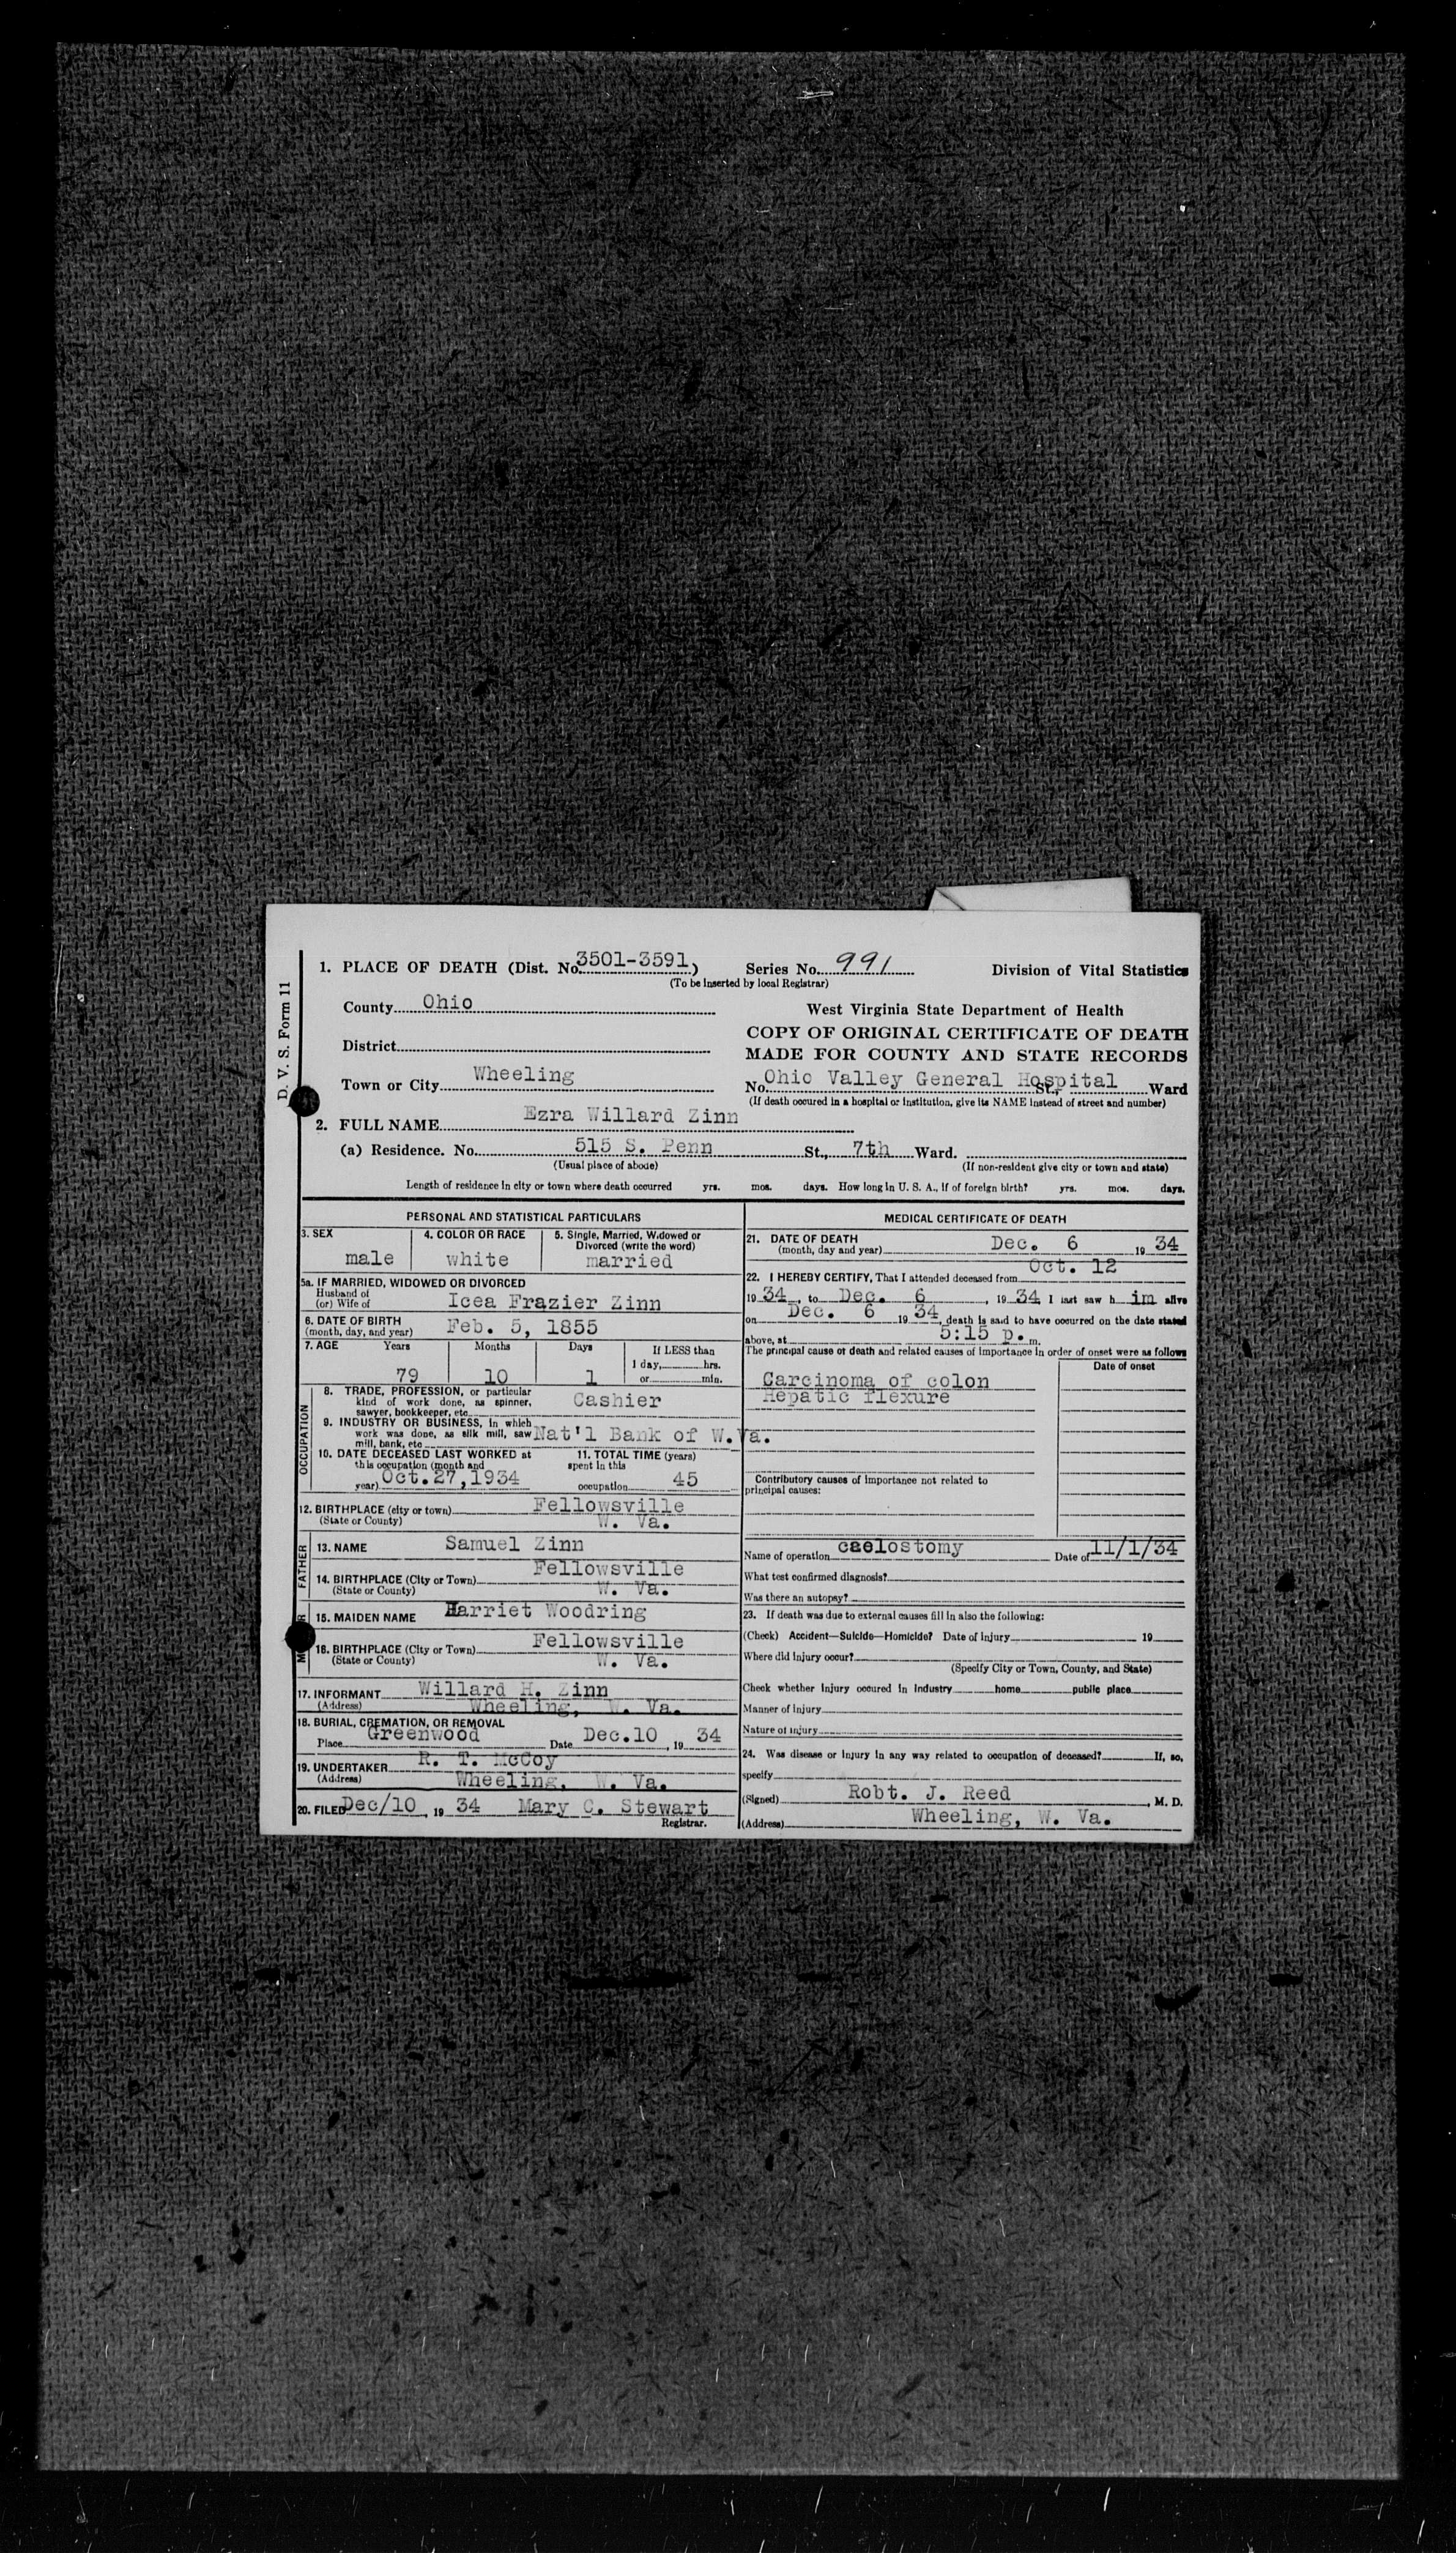 D. V. S. Form 11
1. PLACE OF DEATH (Dist. No. 3501-3591) Series No. 991 Division of Vital Statistics
(To be inserted by local Registrar)
County Ohio West Virginia State Department of Health
COPY OF ORIGINAL CERTIFICATE OF DEATH
District
MADE FOR COUNTY AND STATE RECORDS
Town or City Wheeling No. Ohio Valley General Hospital St., Ward
(If death occured in a hospital or institution, give its NAME instead of street and number)
2. FULL NAME Ezra Willard Zinn
(a) Residence. No. 515 S. Penn St., 7th Ward.
(Usual place of abode) (If non-resident give city or town and state)
Length of residence in city or town where death occurred yrs. mos. days. How long in U. S. A., if of foreign birth? yrs. mos. days.
PERSONAL AND STATISTICAL PARTICULARS
3. SEX 4. COLOR OR RACE 5. Single, Married, Widowed or
Divorced (write the word)
male white married
5a. IF MARRIED, WIDOWED OR DIVORCED
Husband of
(or) Wife of Icea Frazier Zinn
6. DATE OF BIRTH
(month, day, and year) Feb. 5, 1855
7. AGE Years Months Days If LESS than
1 day, hrs.
79 10 1 or min.
OCCUPATION
8. TRADE, PROFESSION, or particular
kind of work done, as spinner,
sawyer, bookkeeper, etc. Cashier
9. INDUSTRY OR BUSINESS, in which
work was done, as silk mill, saw
mill, bank, etc Nat'l Bank of W.Va.
10. DATE DECEASED LAST WORKED at
this occupation (month and
year) Oct.27,1934
11. TOTAL TIME (years)
spent in this
occupation 45
12. BIRTHPLACE (city or town) Fellowsville
(State or County) W. Va.
FATHER
13. NAME Samuel Zinn
14. BIRTHPLACE (City or Town) Fellowsville
(State or County) W. Va.
15. MAIDEN NAME Harriet Woodring
16. BIRTHPLACE (City or Town) Fellowsville
(State or County) W. Va.
17. INFORMANT Willard H. Zinn
(Address) Wheeling, W. Va.
18. BURIAL, CREMATION, OR REMOVAL
Place Greenwood Date Dec.10, 19 34
19. UNDERTAKER R. T. McCoy
(Address) Wheeling, W. Va.
20. FILED Dec/10, 19 34 Mary C. Stewart
Registrar.
MEDICAL CERTIFICATE OF DEATH
21. DATE OF DEATH
(month, day and year) Dec. 6 19 34
22. I HEREBY CERTIFY, That I attended deceased from Oct. 12
19 34, to Dec. 6, 19 34 I last saw h im alive
on Dec. 6 19 34, death is said to have occurred on the date stated
above, at 5:15 p. m.
The principal cause of death and related causes of importance in order of onset were as follows
Date of onset
Carcinoma of colon
Hepatic flexure
Contributory causes of importance not related to
principal causes:
Name of operation caelostomy Date of 11/1/34
What test confirmed diagnosis?
Was there an autopsy?
23. If death was due to external causes fill in also the following:
(Check) Accident—Suicide—Homicide? Date of injury 19
Where did injury occur?
(Specify City or Town, County, and State)
Check whether injury occured in industry home public place
Manner of injury
Nature of injury
24. Was disease or injury in any way related to occupation of deceased? If, so,
specify
(Signed) Robt. J. Reed, M. D.
(Address) Wheeling, W. Va.